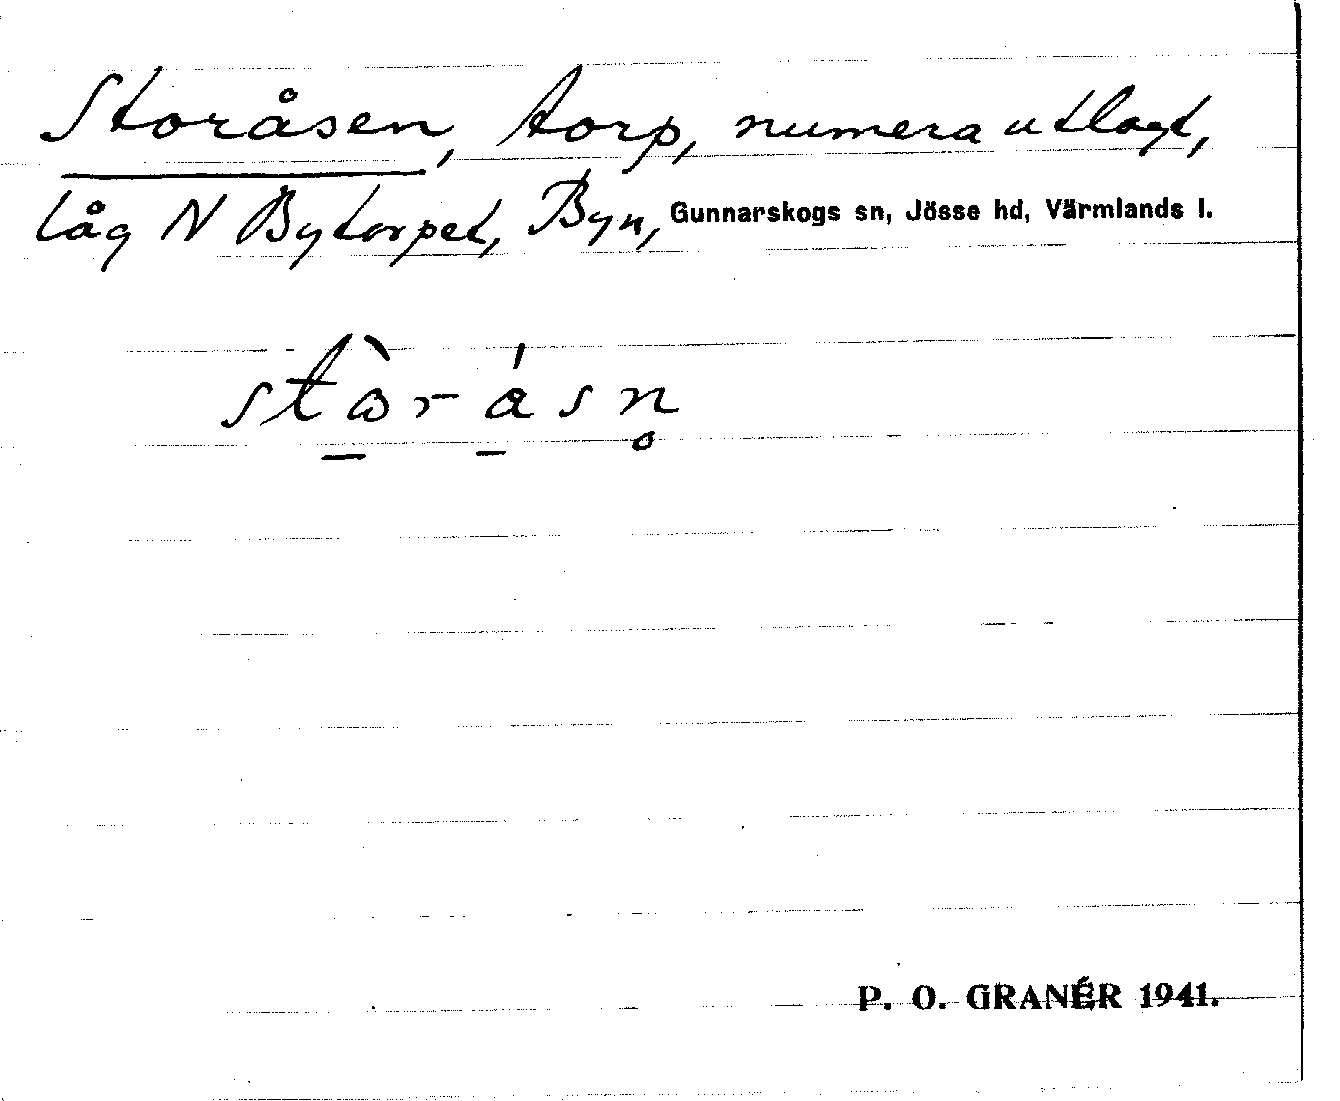 Storåsen, torp, numera utlagt,
låg N Bytorpet, Byn, Gunnarskogs sn, Jösse hd, Värmlands l.
stɷ̀r-ásn̥
P. O. GRANÉR 1941.